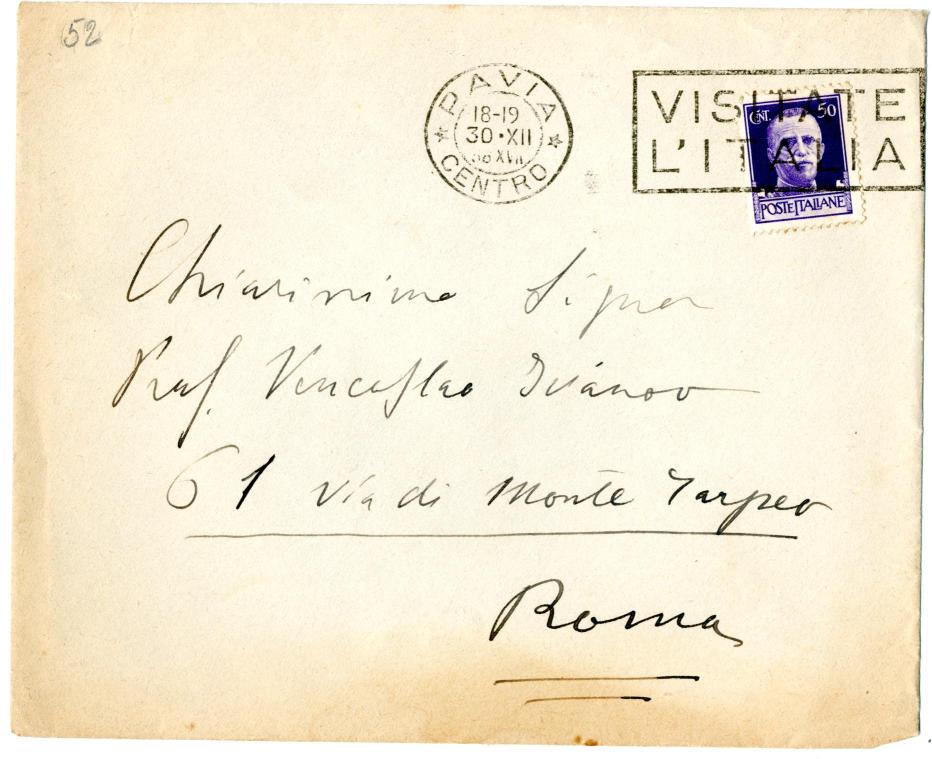 52
PAVIA
18-19
30·XII
38 XVII
CENTRO
VISITATE
L'ITALIA
CENT. 50
POSTE ITALIANE
Chiarissimo Signor
Prof. Venceslao Ivánov
61 via di Monte Tarpeo
Roma